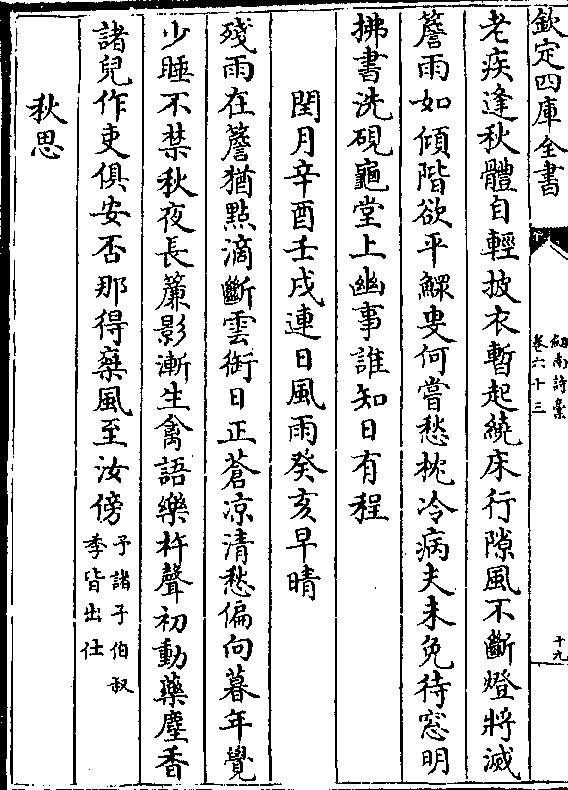 欽定四庫全書
劔南詩稾
卷六十三
十九
老疾逢秋體自輕披衣暫起繞床行隙風不斷燈將滅
簷雨如傾階欲平鰥叟何嘗愁枕冷病夫未免待窓明
拂書洗硯龜堂上幽事誰知日有程
閏月辛酉壬戌連日風雨癸亥早晴
殘雨在簷猶點滴斷雲銜日正蒼凉清愁偏向暮年覺
少睡不禁秋夜長簾影漸生禽語樂杵聲初動藥塵香
諸兒作吏俱安否那得藥風至汝傍
予諸子伯叔
季皆出仕
秋思